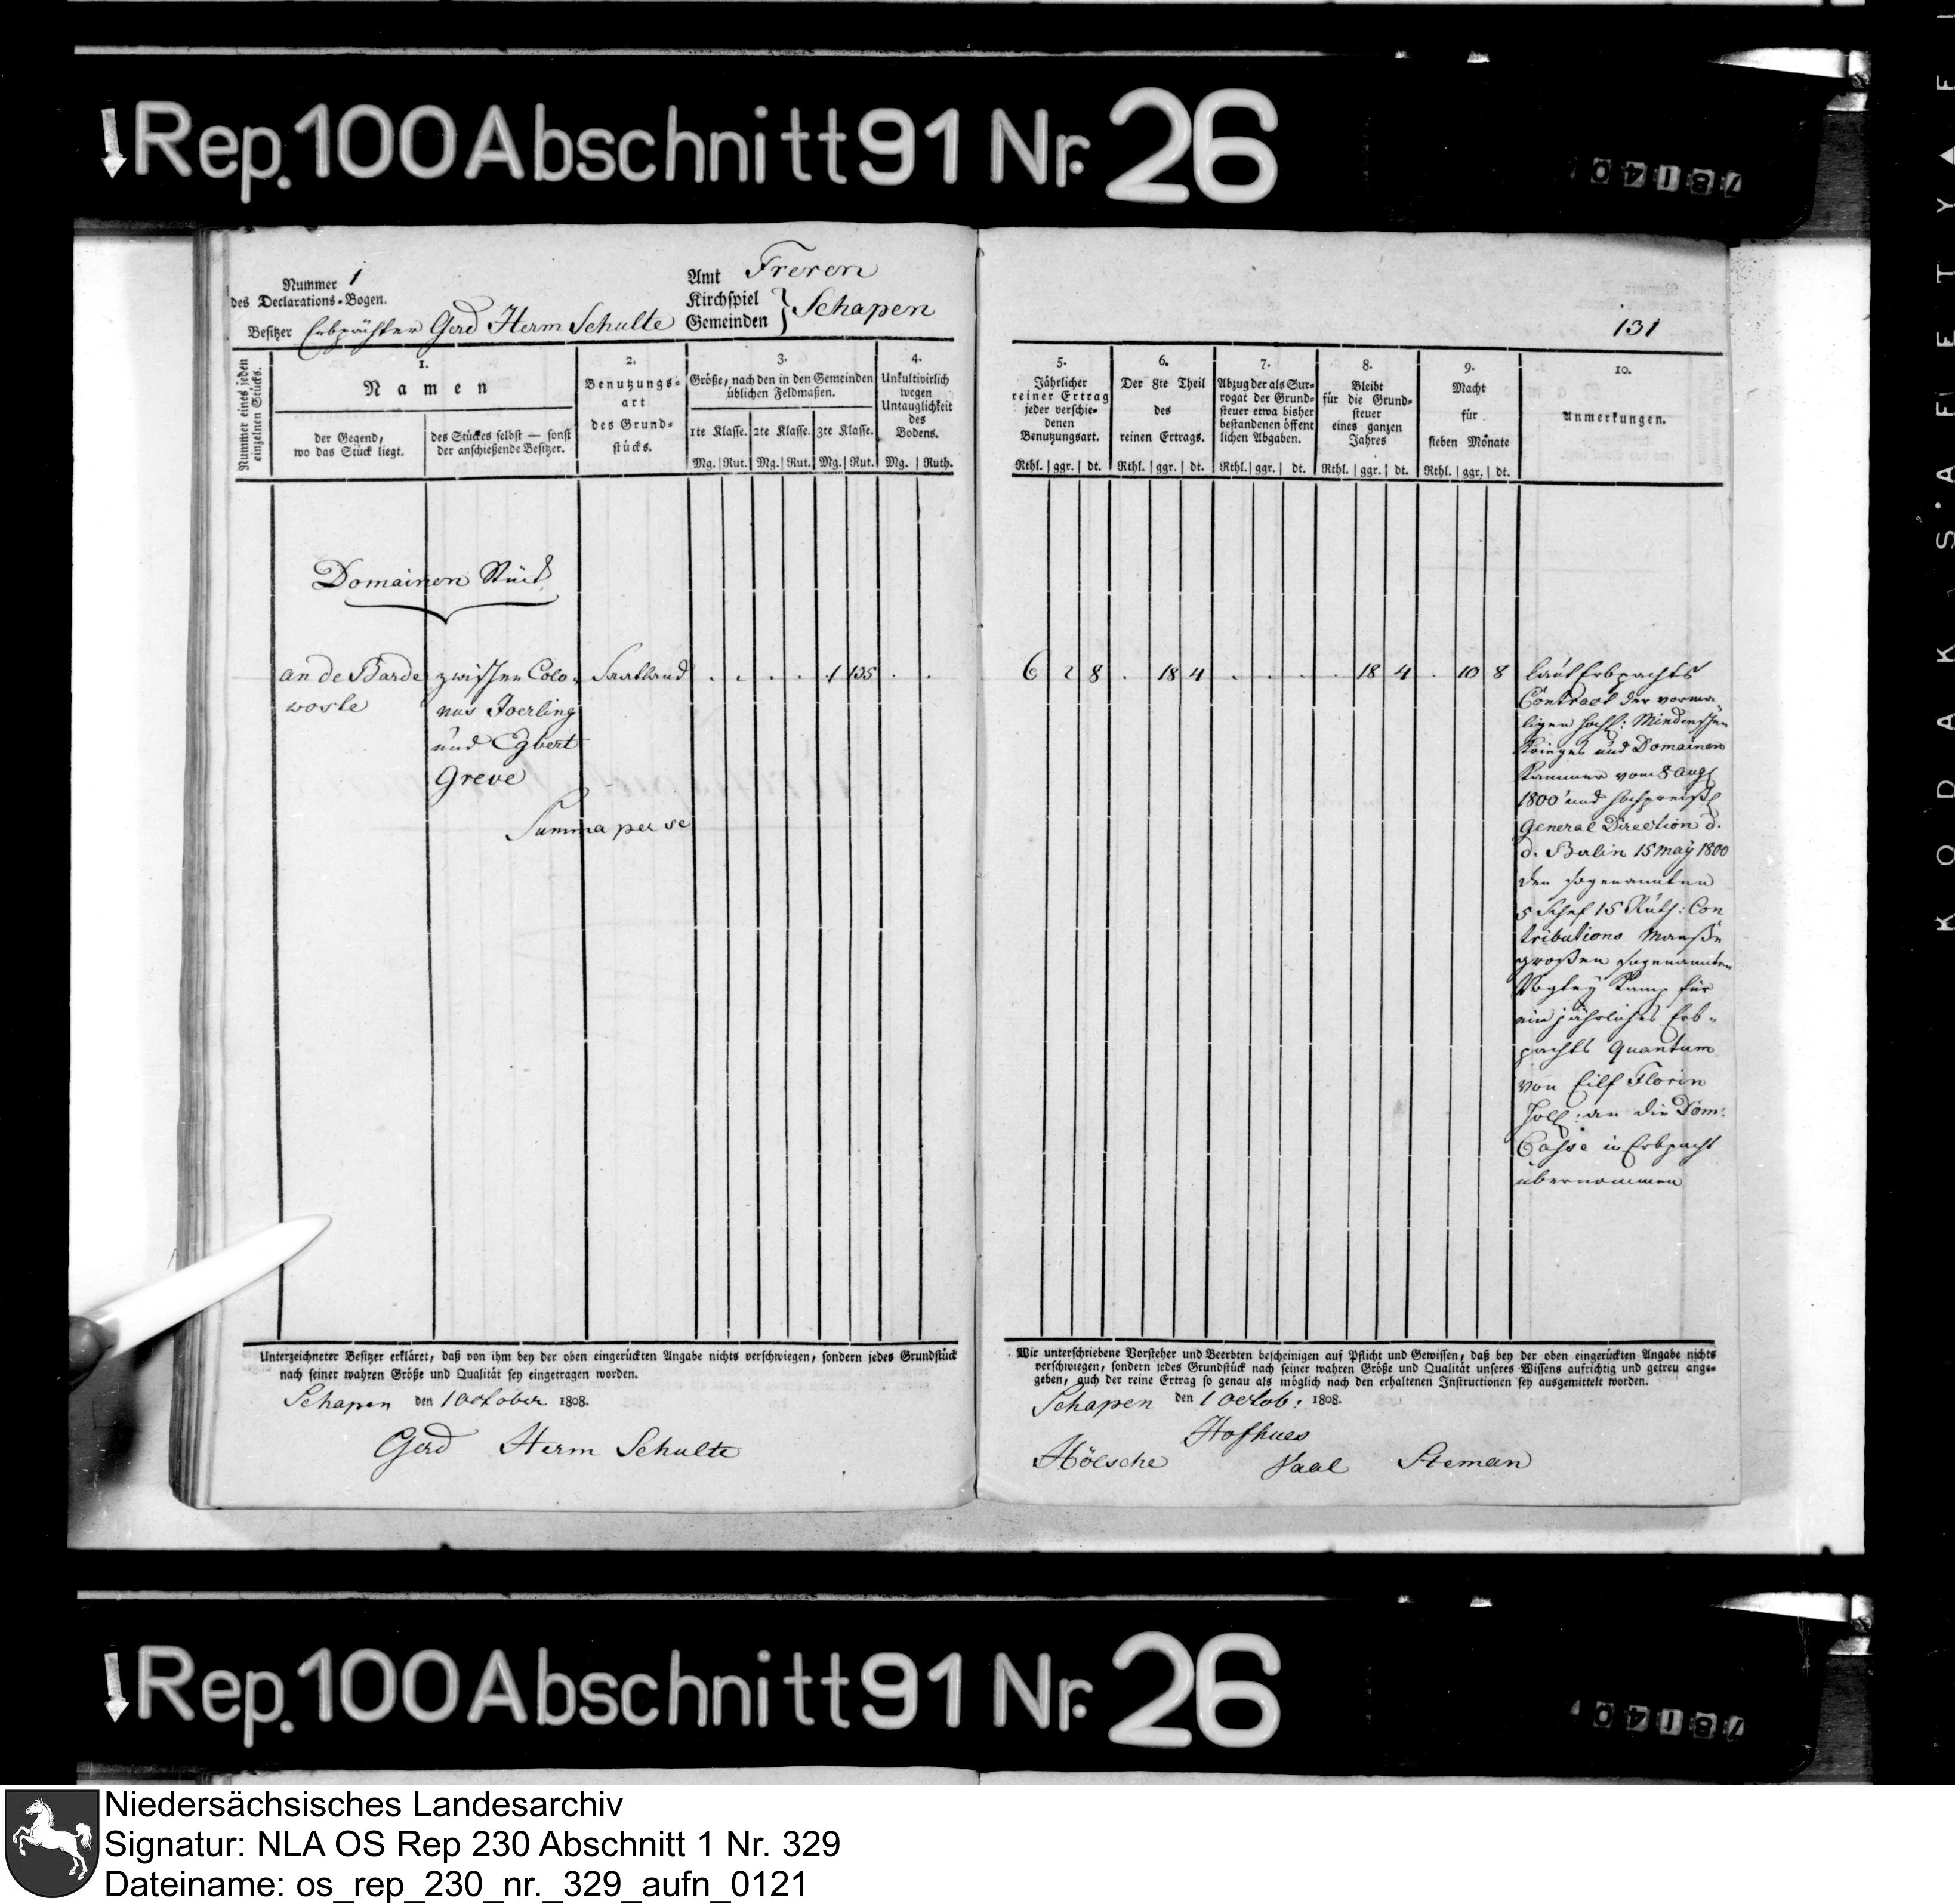 Rep. 100 Abschnitt 91 Nr. 26
Nummer 1
des Declarations-Bogen.
Besitzer Erbpächter Gerd Herm Schulte
Amt Freren
Kirchspiel
Gemeinden } Schapen
Nummer eines jeden einzelnen Stücks.
1.
Namen
der Gegend,
wo das Stück liegt.
des Stückes selbst — sonst
der anschießende Besitzer.
2.
Benutzungs-
art
des Grund-
stücks.
3.
Größe, nach den in den Gemeinden
üblichen Feldmaßen.
1te Klasse. 2te Klasse. 3te Klasse.
Mg. Rut. Mg. Rut. Mg. Rut.
4.
Unkultivirlich
wegen
Untauglichkeit
des
Bodens.
Mg. Ruth.
Domainen Stück
an de Barde
woste
zwischen Colo-
nus Joerling
und Egbert
Greve
Saatland
. . . . 1 135 . .
Summa per se
Unterzeichneter Besitzer erkläret, daß von ihm bey der oben eingerückten Angabe nichts verschwiegen, sondern jedes Grundstück
nach seiner wahren Größe und Qualität sey eingetragen worden.
Schapen den 1 October 1808.
Gerd Herm Schulte
131
5.
Jährlicher
reiner Ertrag
jeder verschie-
denen
Benutzungsart.
Rthl. ggr. dt.
6.
Der 8te Theil
des
reinen Ertrags.
Rthl. ggr. dt.
7.
Abzug der als Sur-
rogat der Grund-
steuer etwa bisher
bestandenen öffent
lichen Abgaben.
Rthl. ggr. dt.
8.
Bleibt
für die Grund-
steuer
eines ganzen
Jahres
Rthl. ggr. dt.
9.
Macht
für
sieben Monate
Rthl. ggr. dt.
10.
Anmerkungen.
6 2 8 . 18 4 . . . . 18 4 . 10 8
laut Erbpachts
Contract der vorma-
ligen hochl: Mindenschen
Krieges und Domainen
Kammer vom 8 Aug
1800 und hochpreißl
General Direction d.
d. Berlin 15 may 1800
den sogenannten
5 Schef 15 Ruth: Con
tributions Maaße
großen sogenannten
Vogtey Kamp für
ein jährliches Erb-
pachts Quantum
von Eilf Florin
Holl: an die Dom:
Casse in Erbpacht
übernommen
Wir unterschriebene Vorsteher und Beerbten bescheinigen auf Pflicht und Gewissen, daß bey der oben eingerückten Angabe nichts
verschwiegen, sondern jedes Grundstück nach seiner wahren Größe und Qualität unseres Wissens aufrichtig und getreu ange-
geben, auch der reine Ertrag so genau als möglich nach den erhaltenen Instructionen sey ausgemittelt worden.
Schapen den 1 Octob: 1808.
Hofhues
Hölsche Vaal Steman
Rep. 100 Abschnitt 91 Nr. 26
Niedersächsisches Landesarchiv
Signatur: NLA OS Rep 230 Abschnitt 1 Nr. 329
Dateiname: os_rep_230_nr._329_aufn_0121